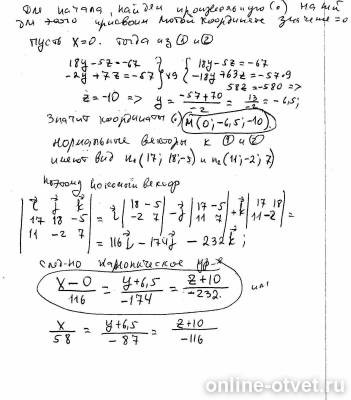 Для начала, найдём произвольную (•) на ней
для этого присвоим любой координате значение =0
пусть x=0. тогда из ① и ②
18y-5z=-67 | 18y-5z=-67
-2y+7z=-57 | ·9 | -18y+63z=-57·9
58z=-580 =>
z=-10 => y = (-57+70)/-2 = 13/-2 = -6,5;
Значит координаты (•) M(0; -6,5; -10)
нормальные векторы к ① и ②
имеют вид n₁(17; 18; -5) и n₂(11; -2; 7)
поэтому искомый вектор
| i j k |
| 17 18 -5 |
| 11 -2 7 | = i | 18 -5 | -2 7 | - j | 17 -5 | 11 7 | + k | 17 18 | 11 -2 | =
= 116i - 174j - 232k;
след-но каноническое ур-е
(x-0)/116 = (y+6,5)/-174 = (z+10)/-232. или
x/58 = (y+6,5)/-87 = (z+10)/-116
online-otvet.ru